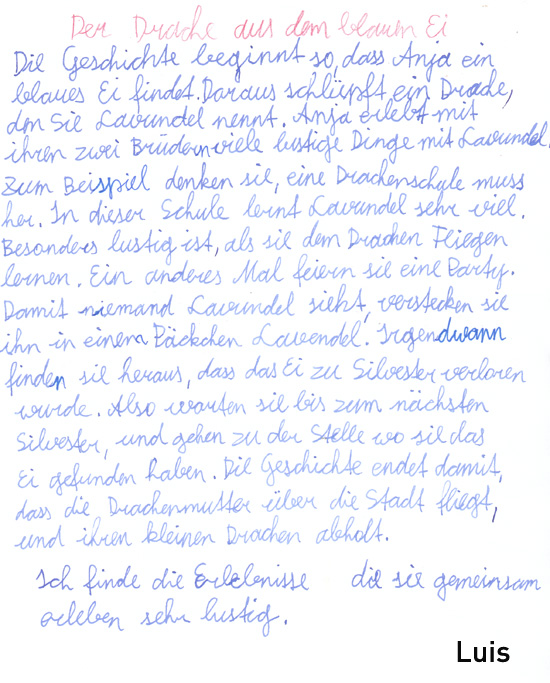 Der Drache aus dem blauen Ei
Die Geschichte beginnt so, dass Anja ein
blaues Ei findet. Daraus schlüpft ein Drache,
den Sie Lavundel nennt. Anja erlebt mit
ihren zwei Brüdern viele lustige Dinge mit Lavundel.
Zum Beispiel denken sie, eine Drachenschule muss
her. In dieser Schule lernt Lavundel sehr viel.
Besonders lustig ist, als sie dem Drachen Fliegen
lernen. Ein anderes Mal feiern sie eine Party.
Damit niemand Lavundel sieht, verstecken sie
ihn in einem Päckchen Lavendel. Irgendwann
finden sie heraus, dass das Ei zu Silvester verloren
wurde. Also warten sie bis zum nächsten
Silvester, und gehen zu der Stelle wo sie das
Ei gefunden haben. Die Geschichte endet damit,
dass die Drachenmutter über die Stadt fliegt,
und ihren kleinen Drachen abholt.
Ich finde die Erlebnisse die sie gemeinsam
erleben sehr lustig.
Luis